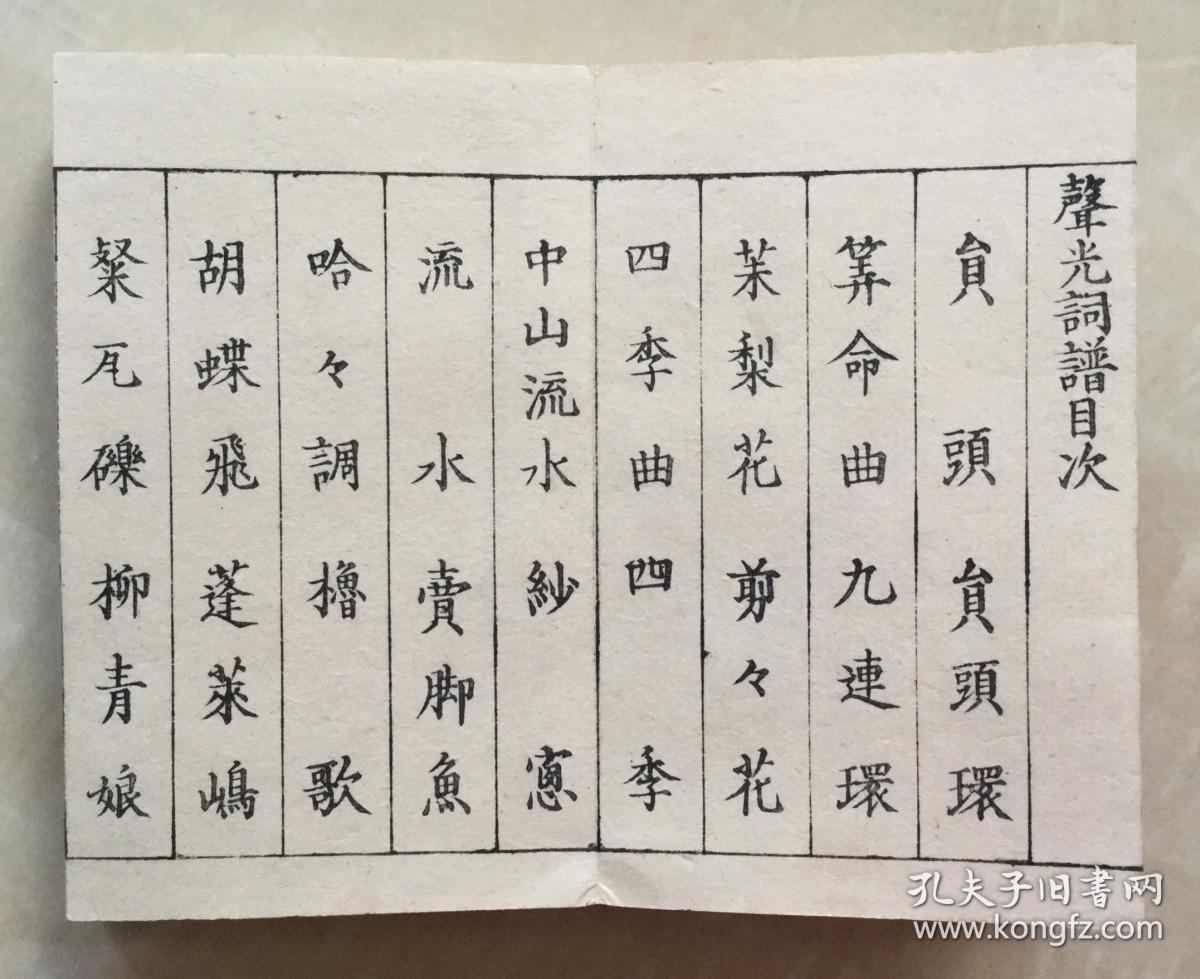 聲光詞譜目次
貟頭 貟頭環
筭命曲 九連環
茉梨花 剪々花
四季曲 四季
中山流水 紗窓
流水 賣脚魚
哈々調 櫓歌
胡蝶飛 蓬萊嶋
粲瓦礫 柳青娘
孔夫子旧书网
www.kongfz.com